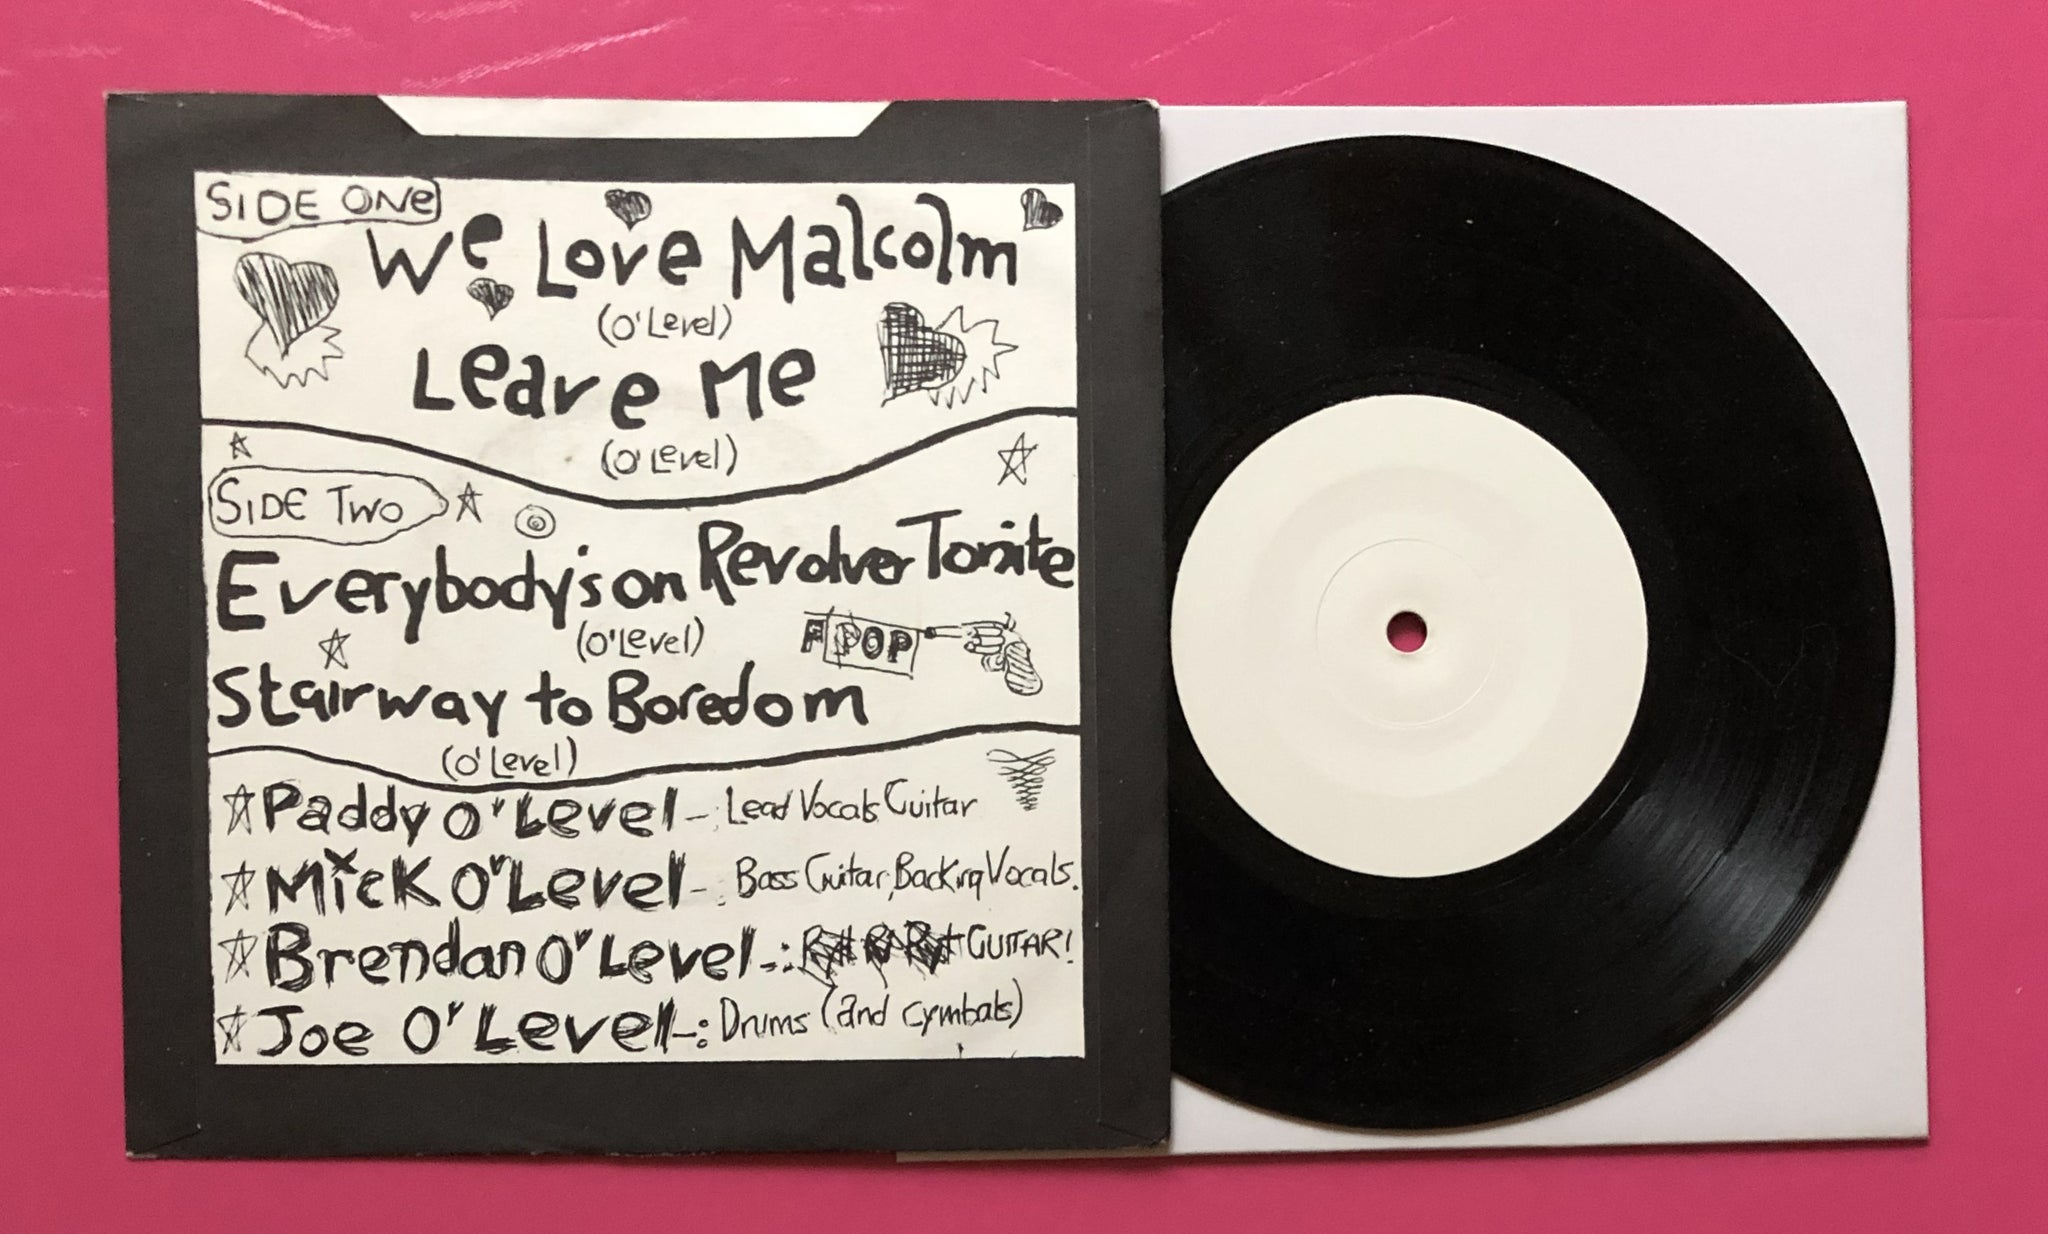 SIDE ONE
We Love Malcolm
(O'Level)
Leave Me
(O'Level)
SIDE TWO
Everybody's on Revolver Tonite
(O'Level)
POP
Stairway to Boredom
(O'Level)
Paddy O'Level - Lead Vocals Guitar
Mick O'Level - Bass Guitar, Backing Vocals.
Brendan O'Level -: GUITAR!
Joe O'Level -: Drums (and cymbals)